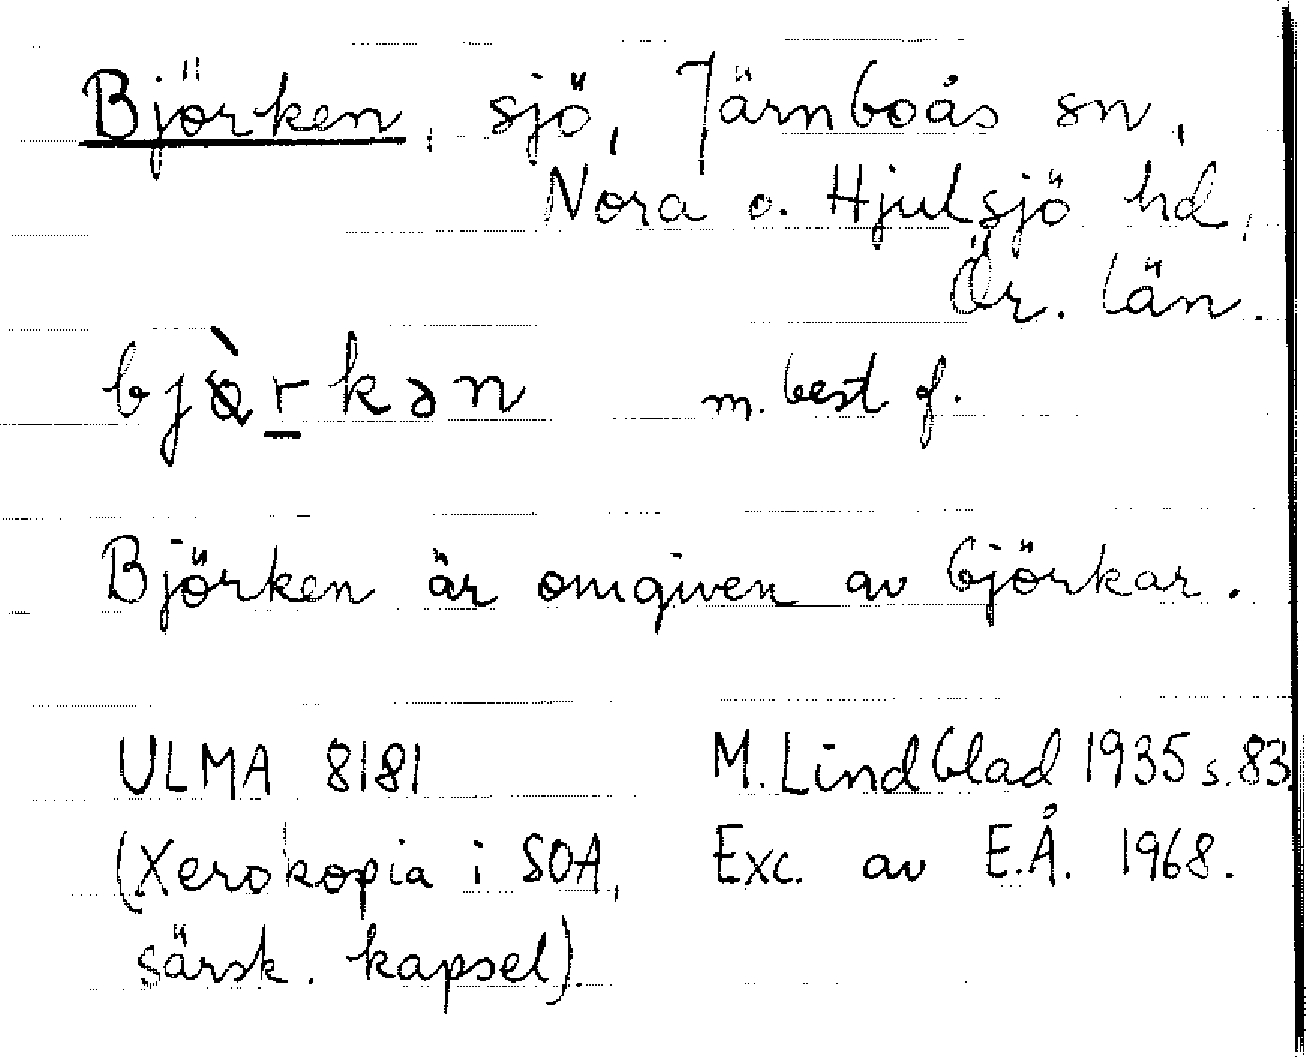 Björken, sjö, Järnboås sn,
Nora o. Hjulsjö hd,
Ör. län.
bjò̀rkən m. best f.
Björken är omgiven av björkar.
ULMA 8181 M. Lindblad 1935 s. 83
(Xerokopia i SOA, Exc. av E.Å. 1968.
särsk. kapsel).